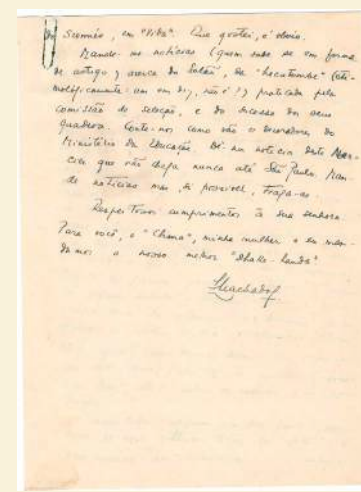 Scenário, em "Vida". Que gostei, é obvio.
Mande-me notícias (quem sabe se em forma
de artigo) acerca do Salão, da "hecatombe" (eti-
mológicamente um em dez, não é?) praticada pela
comissão de seleção, e do sucesso dos seus
quadros. Conte-nos como vão os
Ministério da Educação. Dê-me notícia deste
que não chega nunca até São Paulo. Man-
de notícias mas, si possivel, traga-as.
Respeitosos cumprimentos à sua senhora.
Para você, o "Clima", minha mulher e eu man-
damos o nosso melhor "shake-hands"
LMachado